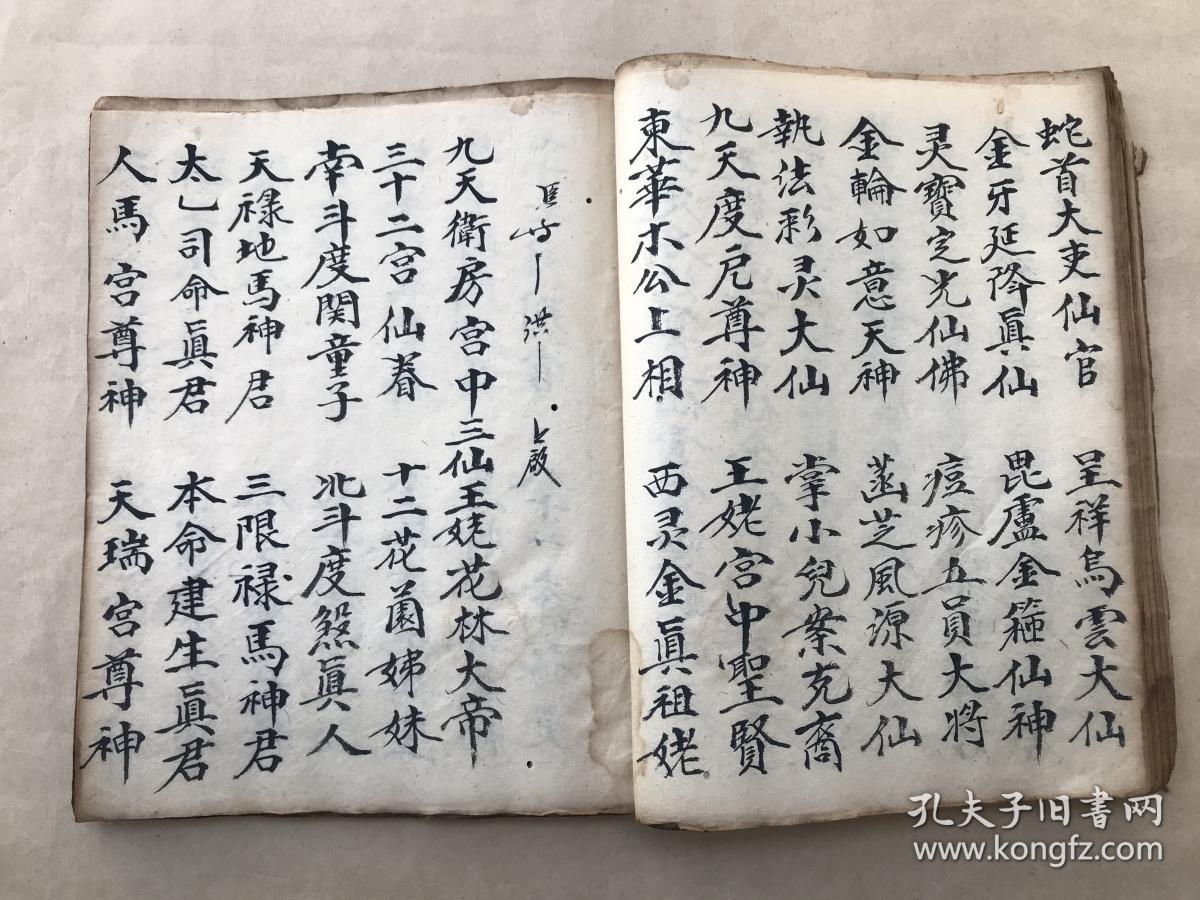 蛇首大吏仙官 呈祥烏雲大仙
金牙延降眞仙 毘盧金箍仙神
灵寶定光仙佛 痘疹五員大将
金輪如意天神 菡芝風源大仙
執法彩灵大仙 掌小兒案克裔
九天度厄尊神 王姥宫中聖賢
東華木公上相 西灵金眞祖姥
洪 上啟
九天衛房宫中三仙王姥花林大帝
三十二宫仙眷 十二花園姊妹
南斗度関童子 北斗度煞眞人
天禄地馬神君 三限禄馬神君
太乚司命眞君 本命建生眞君
人馬宫尊神 天瑞宫尊神
孔夫子旧書网
www.kongfz.com